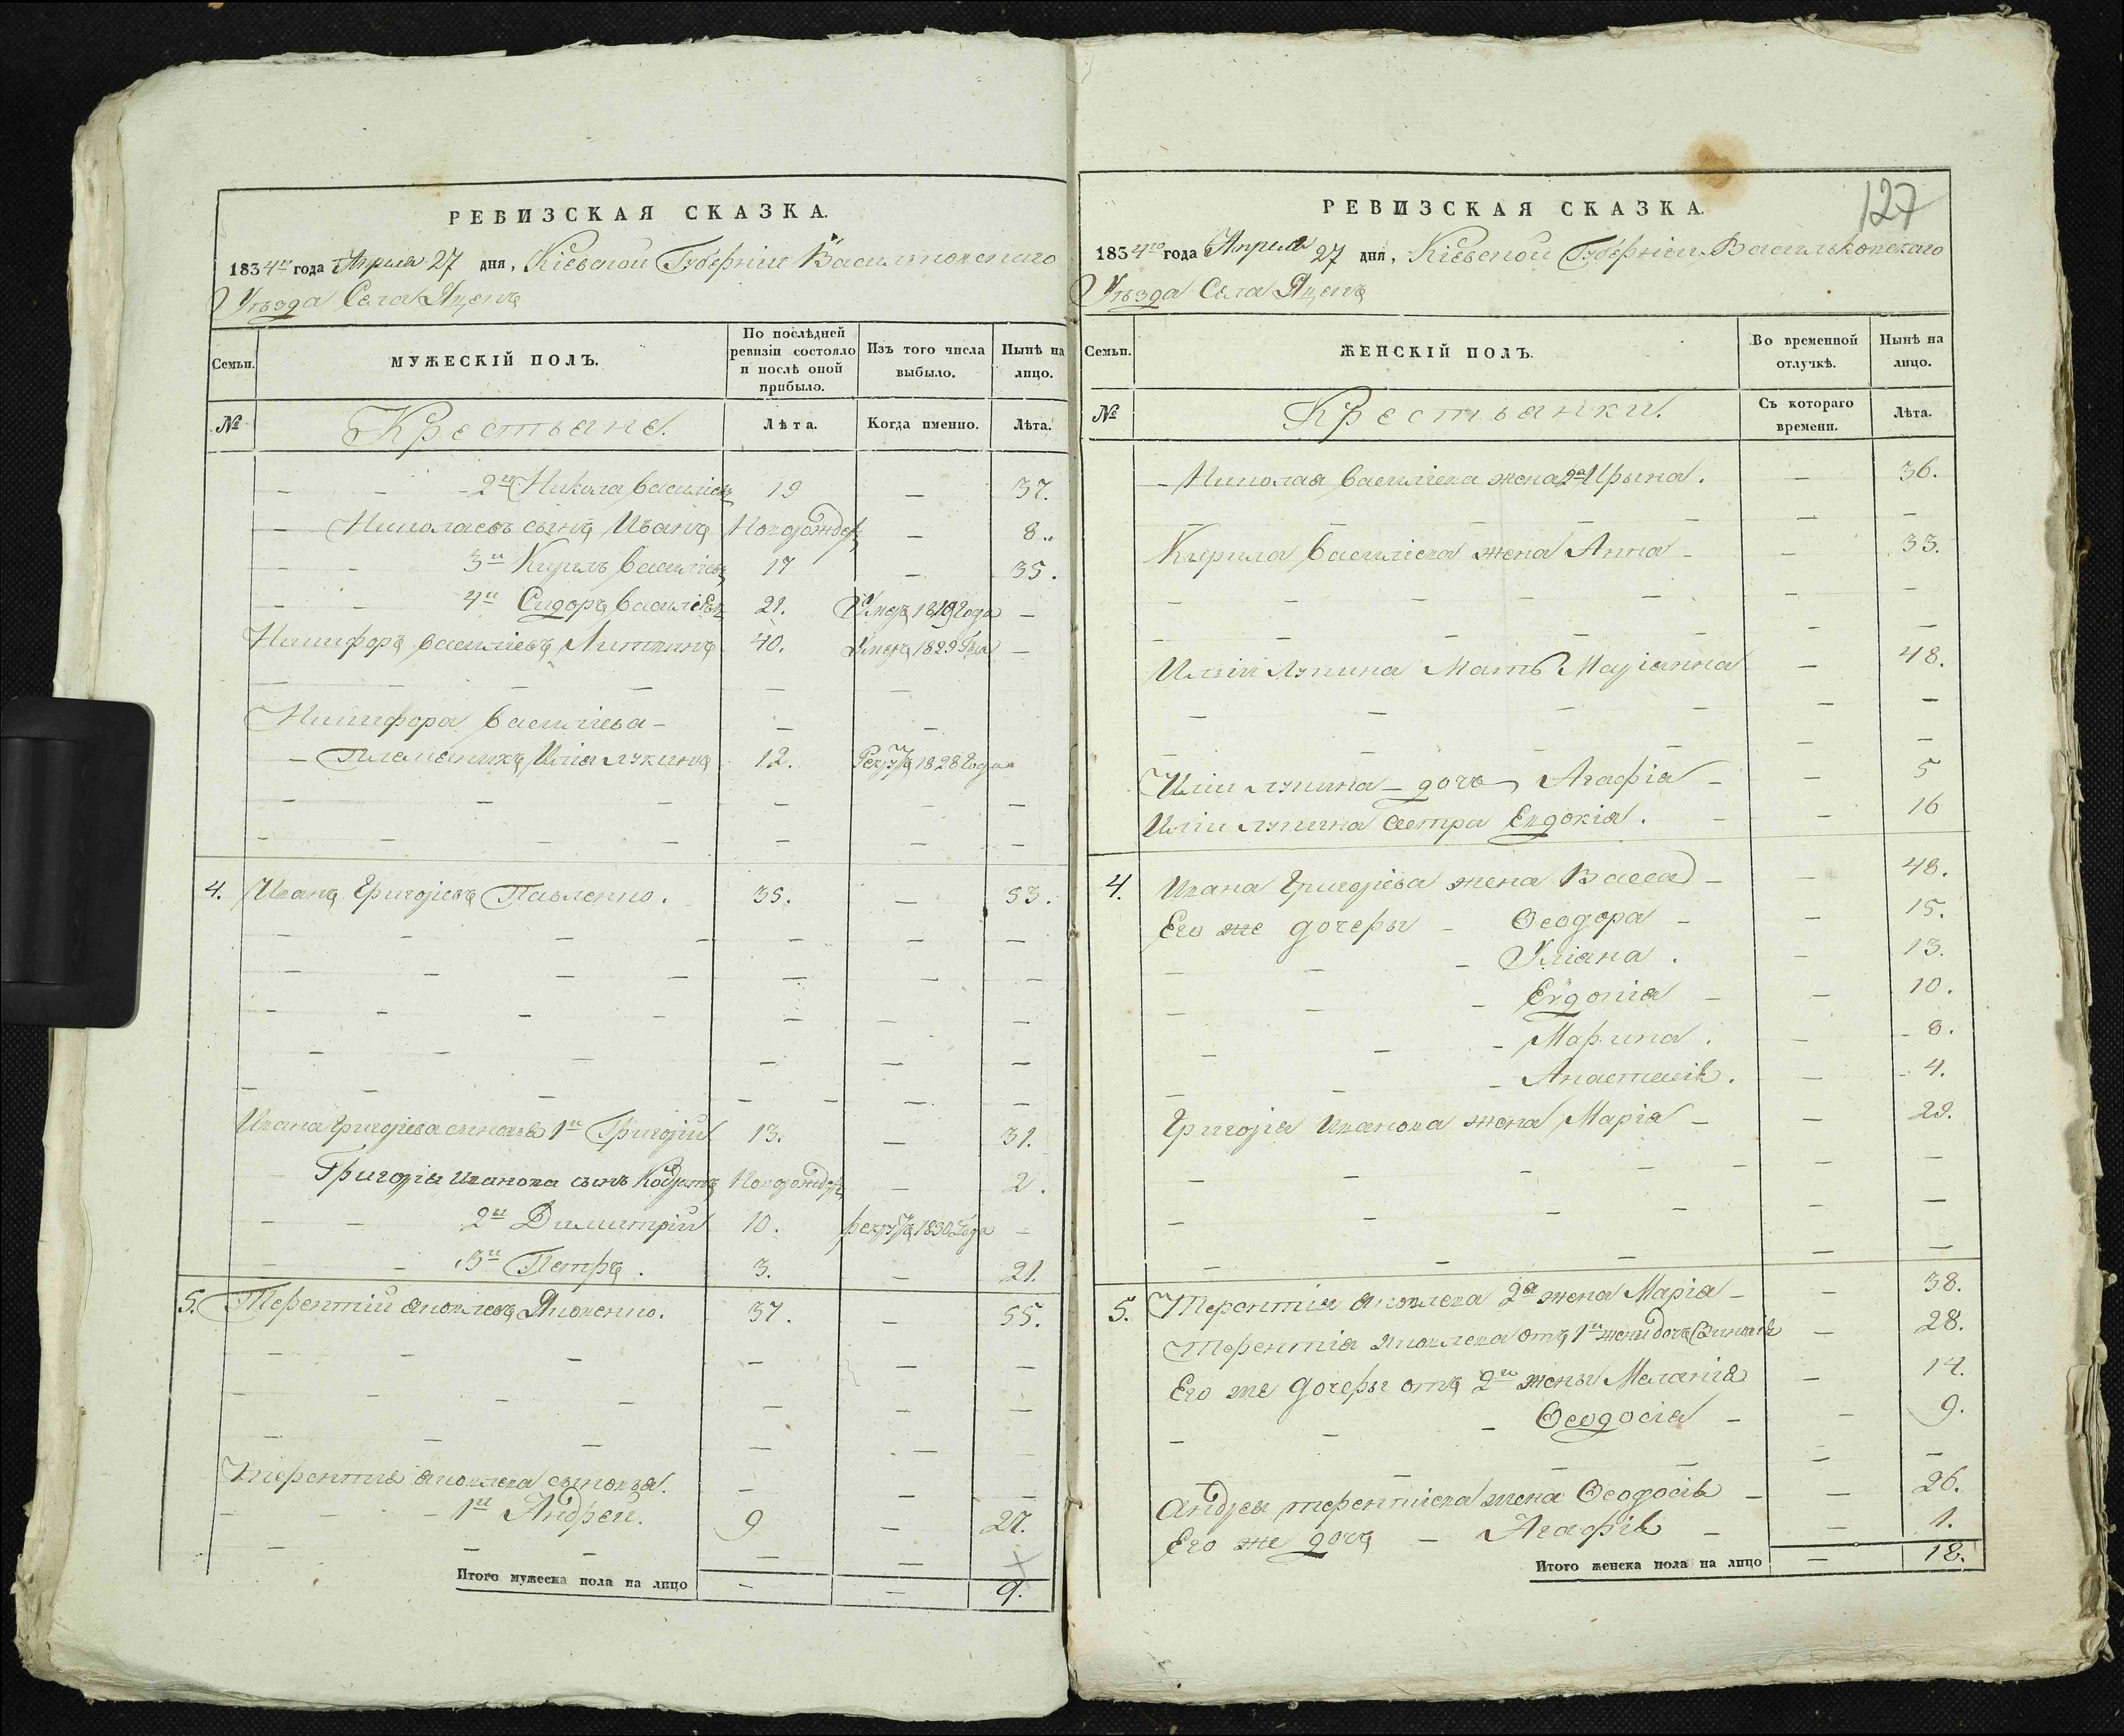 РЕВИЗСКАЯ СКАЗКА.
1834го года Апреля 27 дня, Кіевской Губерніи Васильковскаго
Уѣзда Села Яцекъ
Семьи.
МУЖЕСКІЙ ПОЛЪ.
По послѣдней ревизіи состояло и послѣ оной прибыло.
Изъ того числа выбыло.
Нынѣ на лицо.
№
Крестьяне.
Лѣта.
Когда именно.
Лѣта.
2й Никола Василіевъ 19 — 37.
Николаевъ сынъ Иванъ Новорожден — 8.
3й Кирилъ Василіевъ 17 — 35.
4й Сидоръ Василіевъ 21. Умеръ 1819 Года —
Никифоръ Василіевъ 40. Умеръ 1829 Года —
Никифора Василіева —
Племенникъ Илія Лукинъ 12. Рекрутъ 1828 Года
4. Иванъ Григоріевъ Павленко. 35. — 53.
Ивана Григоріева сыновья 1й Григорій 13. — 31.
Григорія Иванова сынъ Кодратъ Новорожден — 2.
2й Димитрій 10. рекрутъ 1830 Года —
3й Петръ. 3. — 21.
5. Терентій Яковлевъ Яковенко. 37. — 55.
Терентія Яковлева сыновья.
1й Андрей. 9 — 27.
Итого мужеска пола на лицо — — 9.
127
РЕВИЗСКАЯ СКАЗКА.
1834го года Апреля 27 дня, Кіевской Губерніи Васильковскаго
Уѣзда Села Яцекъ
Семьи.
ЖЕНСКІЙ ПОЛЪ.
Во временной отлучкѣ.
Нынѣ на лицо.
№
Крестьянки.
Съ котораго времени.
Лѣта.
Николая Василіева жена 2я Ирына. — 36.
Кирила Василіева жена Анна — — 33.
Иліи Лукина Мать Маріанна — 48.
Иліи Лукина — дочь Агафія — — 5
Иліи Лукина сестра Евдокія. — 16
4. Ивана Григоріева жена Васса — — 48.
Его же дочеры — Ѳеодора — — 15.
Уліана. — 13.
Евдокія — — 10.
Марина. — 8.
Анастасія. — 4.
Григорія Иванова жена Марія — — 29.
5. Терентія Яковлева 2я жена Марія — — 38.
Терентія Яковлева отъ 1й жены дочь — 28.
Его же дочеры отъ 2й жены Меланія — 14.
Ѳеодосія — — 9.
Андрея терентіева жена Ѳеодосія — — 26.
Его же дочь — Агафія — — 1.
Итого женска пола на лицо — 18.